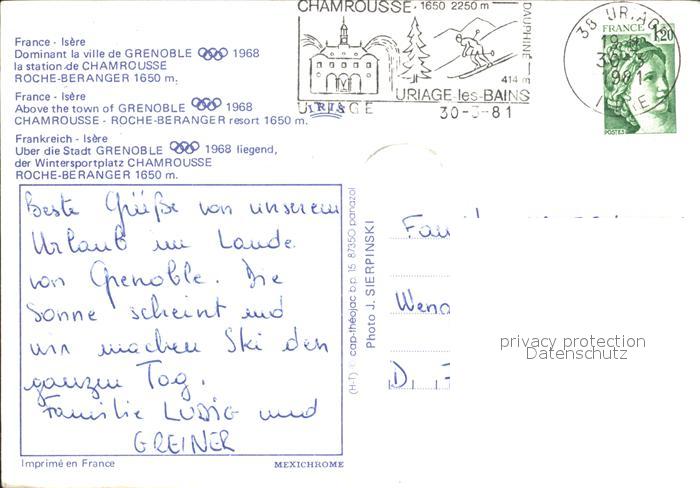 CHAMROUSSE - 1650 2250 m
DAUPHINÉ
414 m
URIAGE
URIAGE-les-BAINS
30-3-81
38 URIAGE
30-3
1981
ISERE
FRANCE 1,20
POSTES
France - Isère
Dominant la ville de GRENOBLE 1968
la station de CHAMROUSSE
ROCHE-BERANGER 1650 m.
France - Isère
Above the town of GRENOBLE 1968
CHAMROUSSE - ROCHE-BERANGER resort 1650 m.
Frankreich - Isère
Uber die Stadt GRENOBLE 1968 liegend,
der Wintersportplatz CHAMROUSSE
ROCHE-BERANGER 1650 m.
IRIS
Beste Grüße von unserem
Urlaub im Lande
von Grenoble. Die
Sonne scheint und
wir machen Ski den
ganzen Tag.
Familie LUDIG und
GREINER
(H-T) cap-théojac b.p. 15 87350 panazol
Photo J. SIERPINSKI
Fam
Wend
D.
privacy protection
Datenschutz
Imprimé en France
MEXICHROME